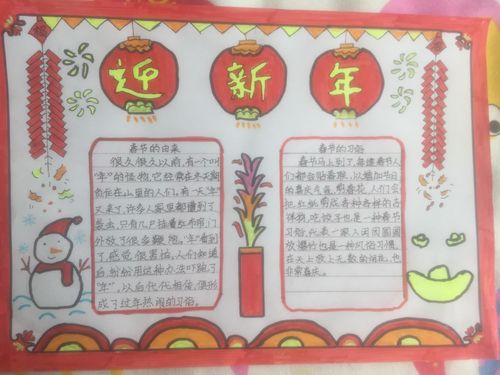 迎新年
春节的由来
很久很久以前,有一个叫
"年"的怪物,它经常在冬天期
负住在山里的人们。有一天"年"
又来了,许多人家里都遭到了
袭击,只有几户挂着红布帘门
外放了很多鞭炮。"年"看到
了,感觉很害怕,人们知道
后,纷纷用这种办法吓跑了
"年",以后代代相传,俱形
成了过年热闹的习俗。
春节的习俗
春节马上到了,每逢春节人
们都会贴春联,以增加节日
的喜庆气氛,剪窗花,人们会
把红纸剪成各种各样的吉
祥物,吃饺子也是一种春节
习俗,代表一家人团团圆圆
放爆竹也是一种风俗习惯,
在天上散上无数的烟花,也
非常喜庆。